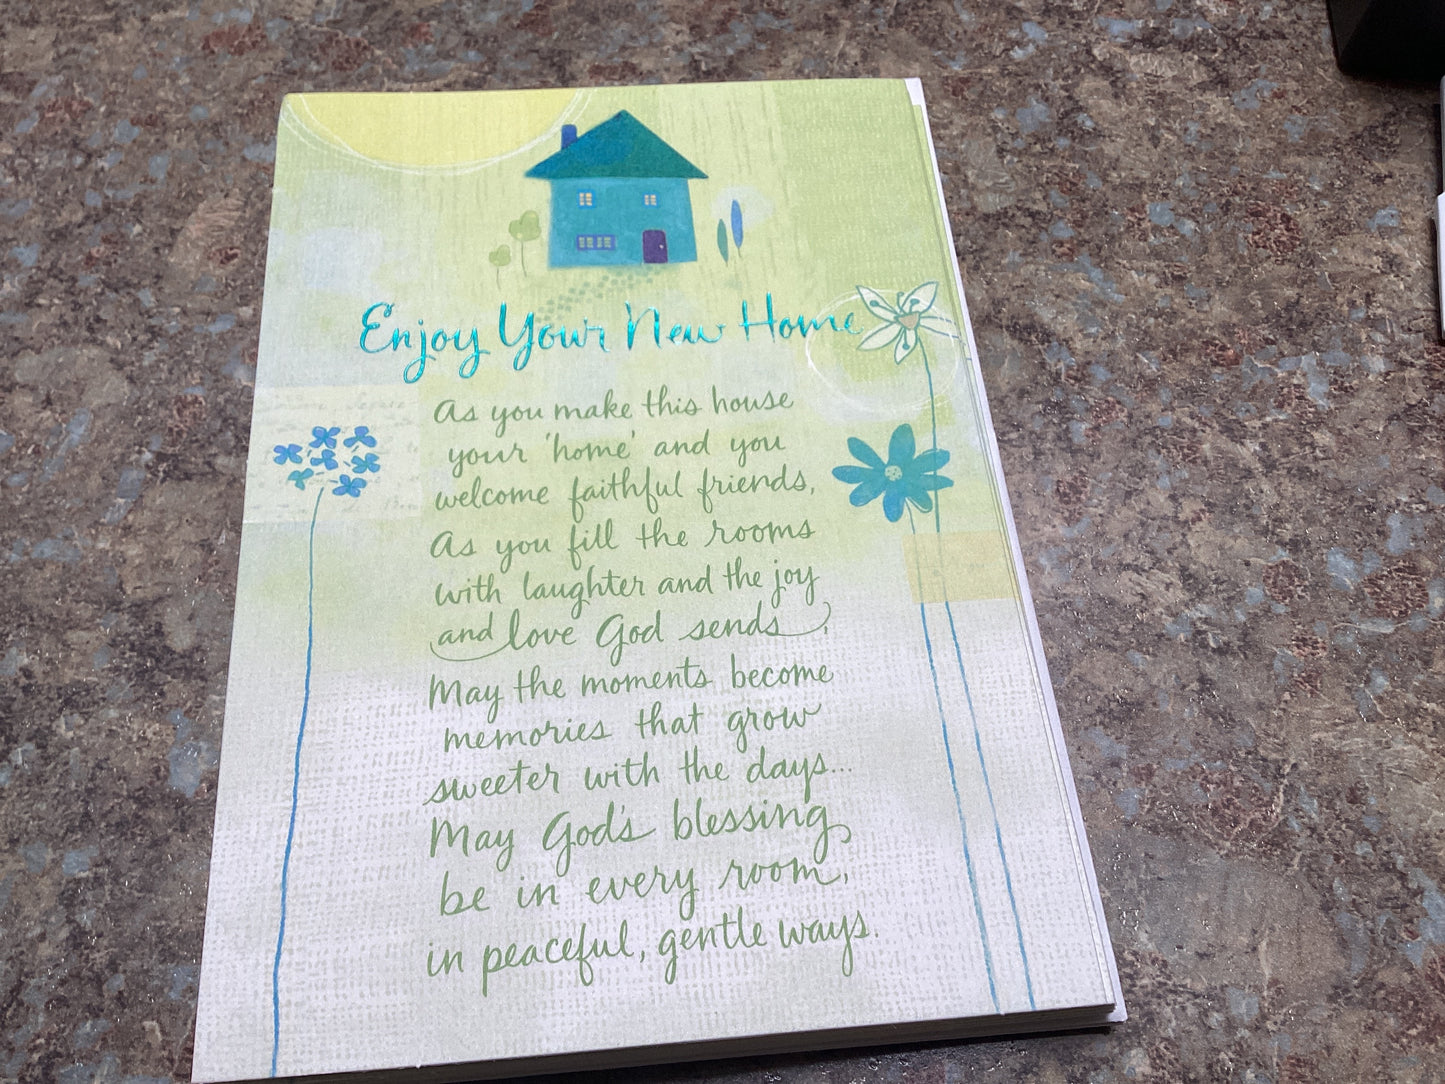 Enjoy Your New Home
As you make this house
your 'home' and you
welcome faithful friends,
As you fill the rooms
with laughter and the joy
and love God sends,
May the moments become
memories that grow
sweeter with the days...
May God's blessing
be in every room,
in peaceful, gentle ways.